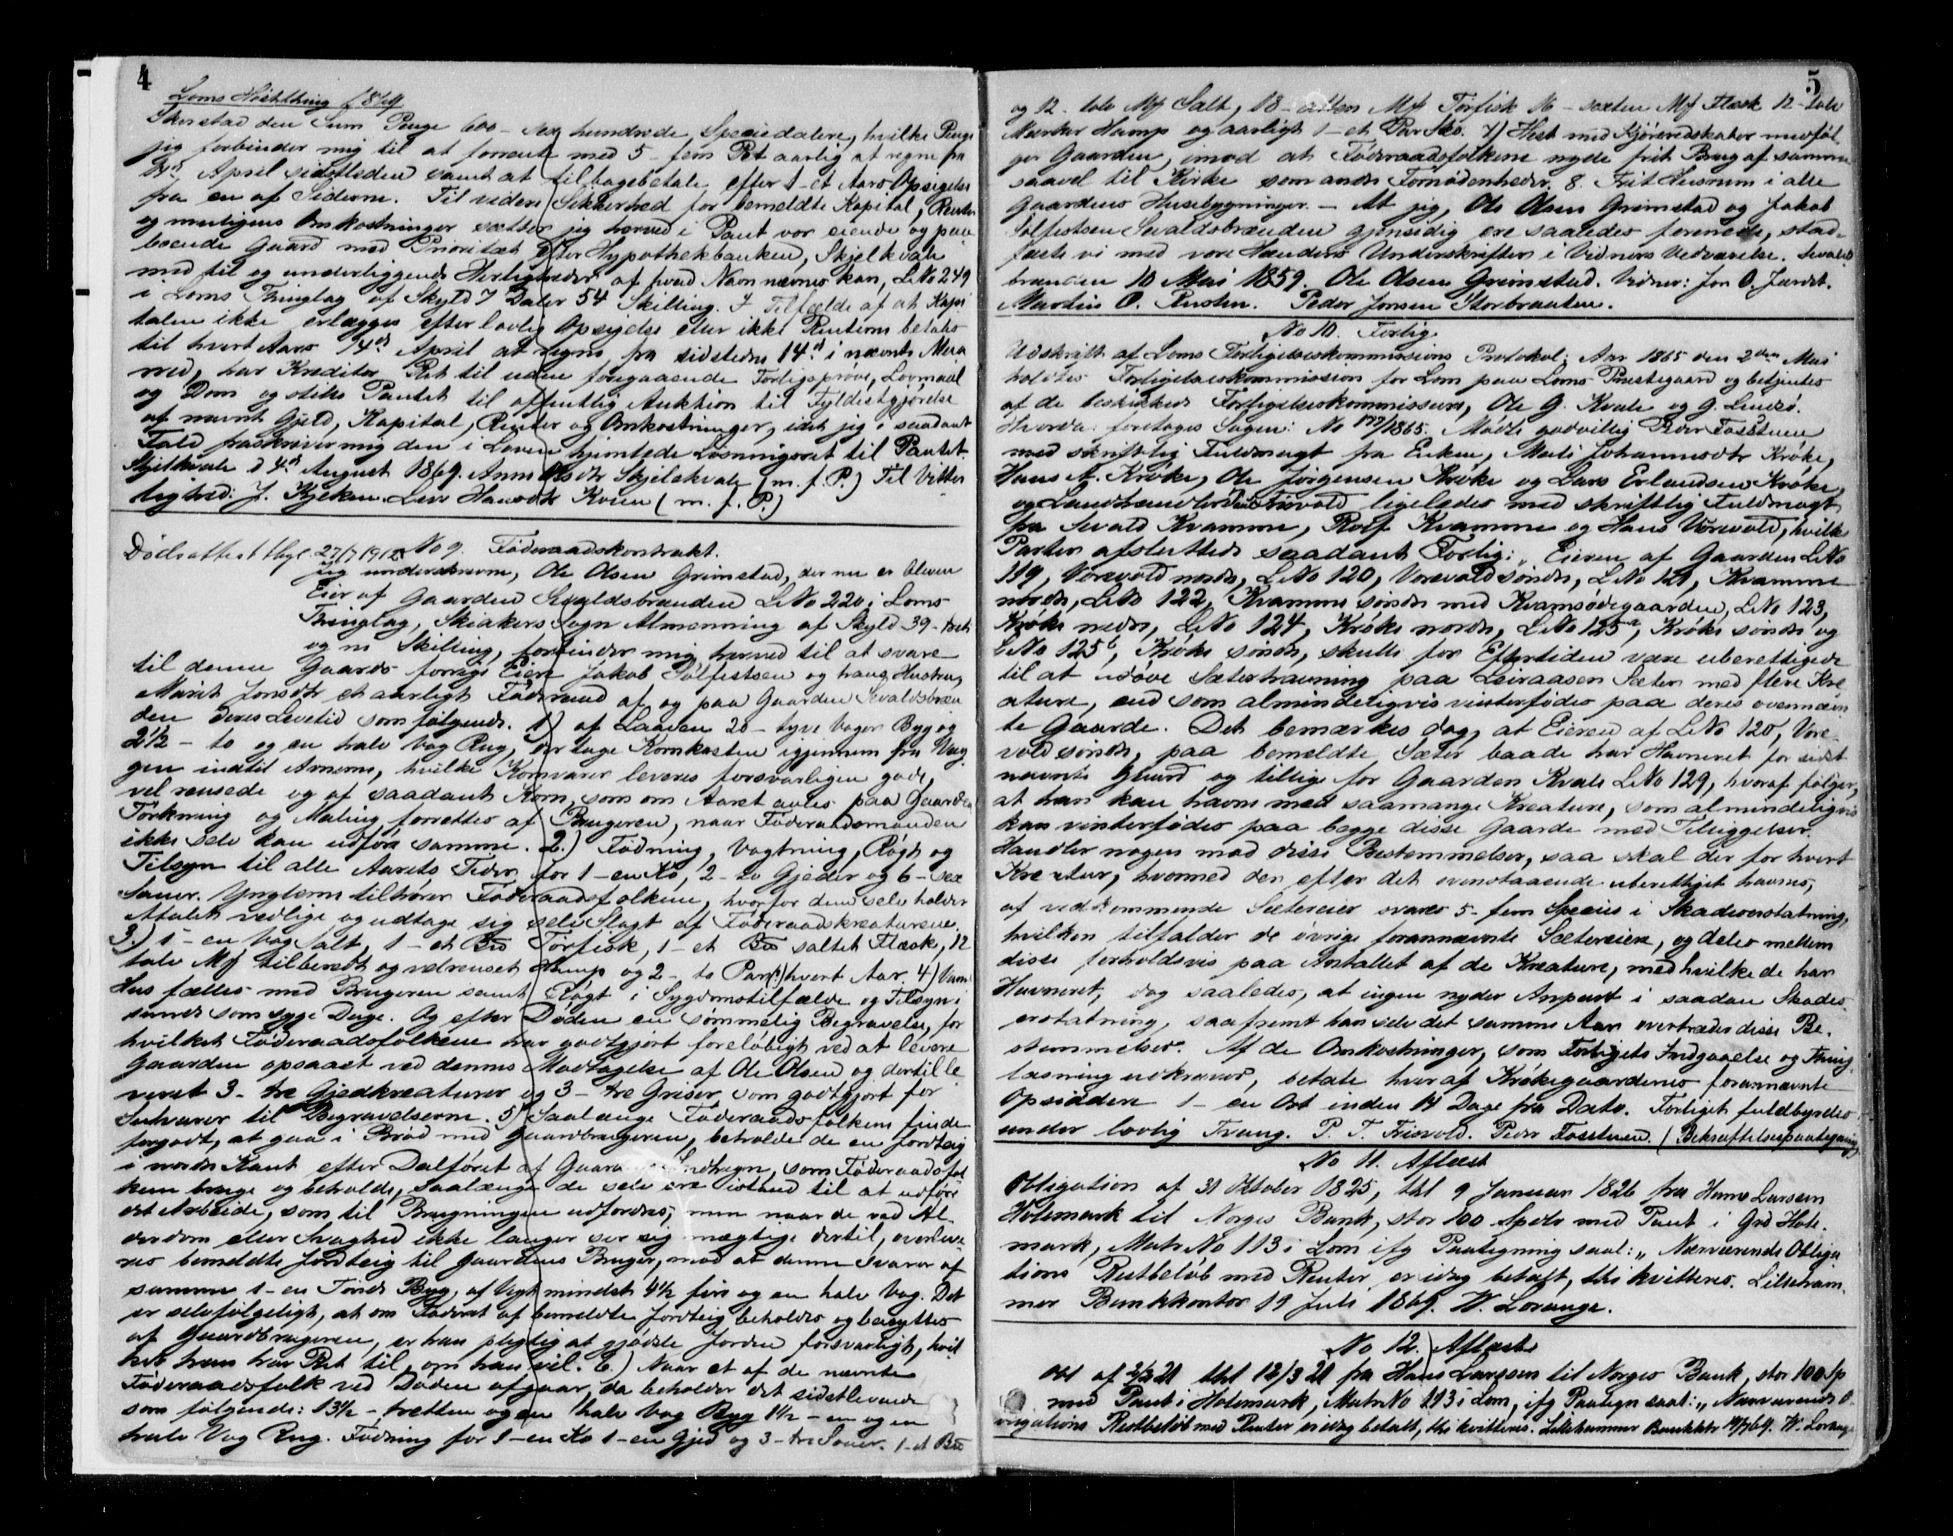 4
Loms Høstthing 1869
Skerstad den Sum Penge 600 - sex hundrede Speciedalere, hvilke Penge
jeg forbinder mig til at forrente med 5 - fem Pct aarlig at regne fra
April sidstleden samt at tilbagebetale efter 1 - et Aars Opsigelse
fra en af Siderne. Til videre Sikkerhed for bemeldte Kapital, Renter
og muligens Omkostninger sætter jeg herved i Pant vor eiende og paa-
boende Gaard med Prioritæt efter Hypothekbanken, Skjelkvale
med til og underliggende Herligheder af hvad Navn nævnes kan, L No 249
i Loms Thinglag af Skyld 7 Daler 54 Skilling. I Tilfælde af at Kapi
talen ikke erlægges efter lovlig Opsigelse eller ikke Renterne betales
til hvert Aars 14de April at regne fra sidstledne 14de i nævnte Maa
ned, har Kreditor Ret til uden foregaaende Forligsprøve, Lovmaal
og Dom og stille Pantet til offentlig Auktion til Fyldestgjørelse
af nævnt Gjeld, Kapital, Renter og Omkostninger, idet jeg i saadant
Fald fraskriver mig den i Loven hjemlede Løsningsret til Pantet.
Skjelkvale d 4de August 1869. Anne Olsdtr Skjelkvale (m. f. P.) Til Vitter
lighed: J. Kjeken. Hansdtr Kvien (m. f. P.)
Dødsattest thgl. 27/7 19 No 9. Føderaadskontrakt.
Jeg underskrevne, Ole Olsen Grimstad, der nu er bleven
Eier af Gaarden Sevaldsbraenden L No 220 i Loms
Thinglag, Skiakers Sogn Almenning af Skyld 39 - treti
og ni Skilling, forbinder mig herved til at svare
til denne Gaards forrige Eier Jakob Solfestsen og hans Hustru
Marit Jonsdtr et aarligt Føderaad af og paa Gaarden Sevaldsbræn
den deres Levetid som følgende. 1) af Laaven 20 - tyve Voger Byg og
2½ - to og en halv Vog Rug, der tage Kornkasten igjennem fra Væg
gen indtil Arnerne, hvilke Kornvarer leveres forsvarligen godt,
vel rensede og af saadant Korn, som om Aaret avles paa Gaarden
Tørkning og Maling forrettes af Brugeren, naar Føderaadsmanden
ikke selv kan udføre samme. 2.) Fødning, Vogtning, Røgt og
Tilsyn til alle Aarets Tider for 1 - en Ko, 2 - to Gjeder og 6 - sex
Sauer. Ynglerne tilhører Føderaadsfolkene, hvorfor dem selv holder
Afalet vedlige og udtage sig selv Slagt af Føderaadskreaturene.
3.) 1 - en Vog Salt, 1 - et Bis Tørfisk, 1 - et Bis saltet Flæsk, 12
tolv Mrk tilberedt og velrenset Hamp og 2 - to Par hvert Aar. 4) Vaan
Hus fælles med Brugeren samt Røgt i Sygdomstilfælde og Tilsyn i
sunde som syge Dage. Og efter Døden en sømmelig Begravelse, for
hvilket Føderaadsfolkene har godtgjort foreløbigt ved at levere
Gaarden opsaaet ved dennes Modtagelse af Ole Olsen og dertil le
veret 3 - tre Gjedkreaturer og 3 - tre Griser, som godtgjort for
Suulvarer til Begravelserne. 5) Saalænge Føderaadsfolkene finde
forgodt, at gaa i Brød med Gaardbrugeren, beholde de en Jordteig
i nordre Kant efter Dalføret af Gaardens Indhegn, som Føderaadsfol
kene bruge og beholde, saalænge de selv ere istand til at udføre
det Arbeide, som til Brugningen udfordres, men naar de ved Al-
derdom eller Svaghed ikke længer ser sig mægtige dertil, overleve
res bemeldte Jordteig til Gaardens Bruger, mod at denne svarer af
samme 1 - en Tønde Byg, af Vægt mindst 4½ fire og en halv Vog. Det
er selvfølgeligt, at om Foderet af bemeldte Jordteig beholdes og benyttes
af Gaardbrugeren, er han pligtig at gjødsle Jorden forsvarligt, hvil
ket han har Ret til, om han vil. 6.) Naar et af de nævnte
Føderaadsfolk ved Døden afgaar, da beholder det sidstlevende
som følgende: 13½ - tretten og en halv Vog Byg 1½ - en og en
halv Vog Rug. Fødning for 1 - en Ko 1 - en Gjed og 3 - tre Sauer. 1 - et Bis
5
og 12 - tolv Mrk Salt, 18 - atten Mrk Tørfisk 16 - sexten Mrk Flæsk 12 - tolv
Marker Hamp og aarligt 1 - et Par Sko. 7) Hest med Kjøreredskaber medføl
ger Gaarden, imod at Føderaadsfolkene nyde frit Brug af samme
saavel til Kirke som andre Fornødenheder. 8. Frit Husrum i alle
Gaardens Husebygninger. - At jeg, Ole Olsen Grimstad og Jakob
Solfestsen Sevaldsbrænden gjensidig ere saaledes forenede, stad-
fæste vi med vore Hænders Underskrifter i Vidners Nærværelse. Sevalds
brænden 10 Mai 1859. Ole Olsen Grimstad. Vidner: Jon O. Jærdt.
Martin O. Rusten. Peder Jonsen Storbraaten.
No 10. Forlig.
Udskrift af Loms Forligelseskommissions Protokol: Aar 1865 den 2den Mai
holdtes Forligelseskommission for Lom paa Loms Præstegaard og betjentes
af de beskikkede Forligelseskommissairer, Ole G. Kvale og G. Lindsø.
Hvorda: foretages Sagen: No /1865. Mødte godvillig Peder Fosstuen
med skriftlig Fuldmagt fra Enken, Mari Johannesdtr Krøke,
Hans A. Krøke, Ole Jørgensen Krøke og Lars Erlandsen Krøke,
og Landhandler Frisvold ligeledes med skriftlig Fuldmagt
fra Sevald Kvamme, Rolf Kvamme og Hans Vorevold, hvilke
Parter afsluttede saadant Forlig: „ Eieren af Gaarden L No
119, Vorevold nordre, L No 120, Vorevold søndre, L No 121, Kvamme
nordre, L No 122, Kvamme søndre med Kvamsødegaarden, L No 123,
Krøke nedre, L No 124, Krøke nordre, L No 125a, Krøke søndre og
L No 125b, Krøke søndre, skulle for Eftertiden være uberettigede
til at udøve Sæterhavning paa Leiraasen Sæter med flere Kre
ature, end som almindeligvis vinterfødes paa deres ovennævn
te Gaarde. Det bemærkes dog, at Eieren af L No 120, Vore-
vold søndre, paa bemeldte Sæter baade har Havneret for sidst
nævnte Gaard og tillige for Gaarden Kvale L No 129, hvoraf følger,
at han kan havne med saamange Kreature, som almindeligvis
kan vinterfødes paa begge disse Gaarde med Tilliggelser.
Handler nogen mod disse Bestemmelser, saa skal der for hvert
Kreatur, hvormed den efter det ovenstaaende uberettiget havnes,
af vedkommende Sætereier svares 5 - fem Species i Skadeserstatning,
hvilken tilfalder de øvrige forannævnte Sætereiere, og deles mellem
disse forholdsvis paa Antallet af de Kreature, med hvilke de har
Havneret, dog saaledes, at ingen nyder Anpart i saadan Skades-
erstatning, saafremt han selv det samme Aar overtræder disse Be-
stemmelser. Af de Omkostninger, som Forligets Indgaaelse og Thing
læsning udkræver, betale hver af Krøkegaardenes forannævnte
Opsiddere 1 - en Ort inden 14 Dage fra Dato. Forliget fuldbyrdes
under lovlig Tvang. P. T. Frisvold. Peder Fosstuen. (Bekræftelsespaategning)
No 11. Aflæst
Obligation af 31 Oktober 1825, thl 9 Januar 1826 fra Hans Larsen
Holemark til Norges Bank, stor 100 Spdlr med Pant i Grd Hole-
mark, Matr No 113 i Lom ifg Paategning saal: „ Nærværende Obliga
tions Restbeløb med Renter er idag betalt, thi kvitteres. Lilleham-
mer Bankkontor 19 Juli 1869. W. Lorange.
No 12. Aflæst
Obl af 2/2 21 thl 12/3 21 fra Hans Larssen til Norges Bank, stor 100 Sp
med Pant i Holemark, Matr No 113 i Lom, ifg Paategn saal: „ Nærværende O-
bligations Restbeløb med Renter er idag betalt, thi kvitteres. Lillehammer Bankktr 19/7 69. W. Lorange